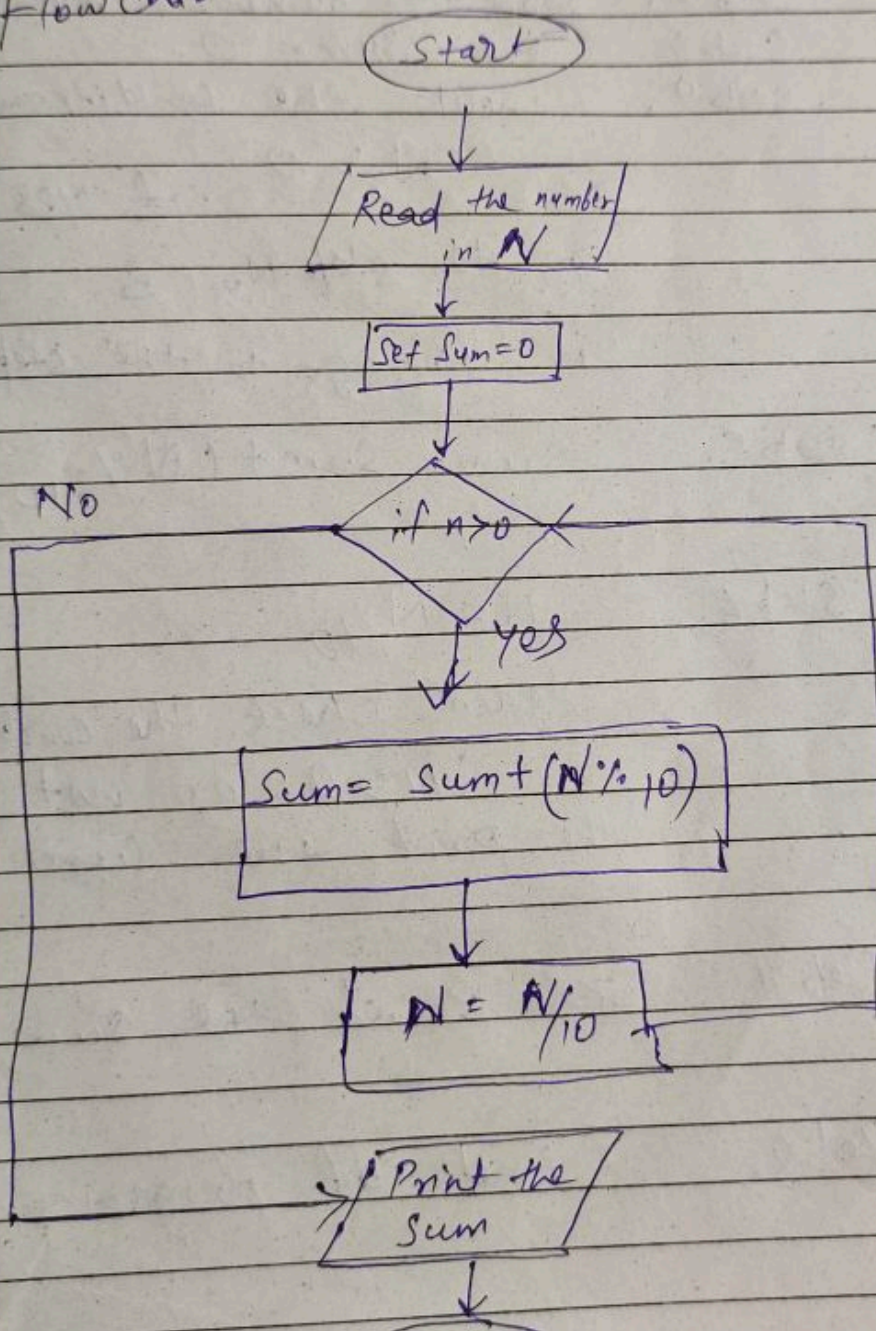 Flow
Start
Read the number
in N
Set Sum=0
No
if n>0
Yes
Sum= Sum+(N%10)
N = N/10
Print the
Sum